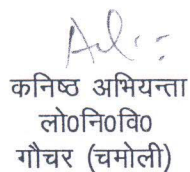 कनिष्ठ अभियन्ता
लो0नि0वि0
गौचर (चमोली)